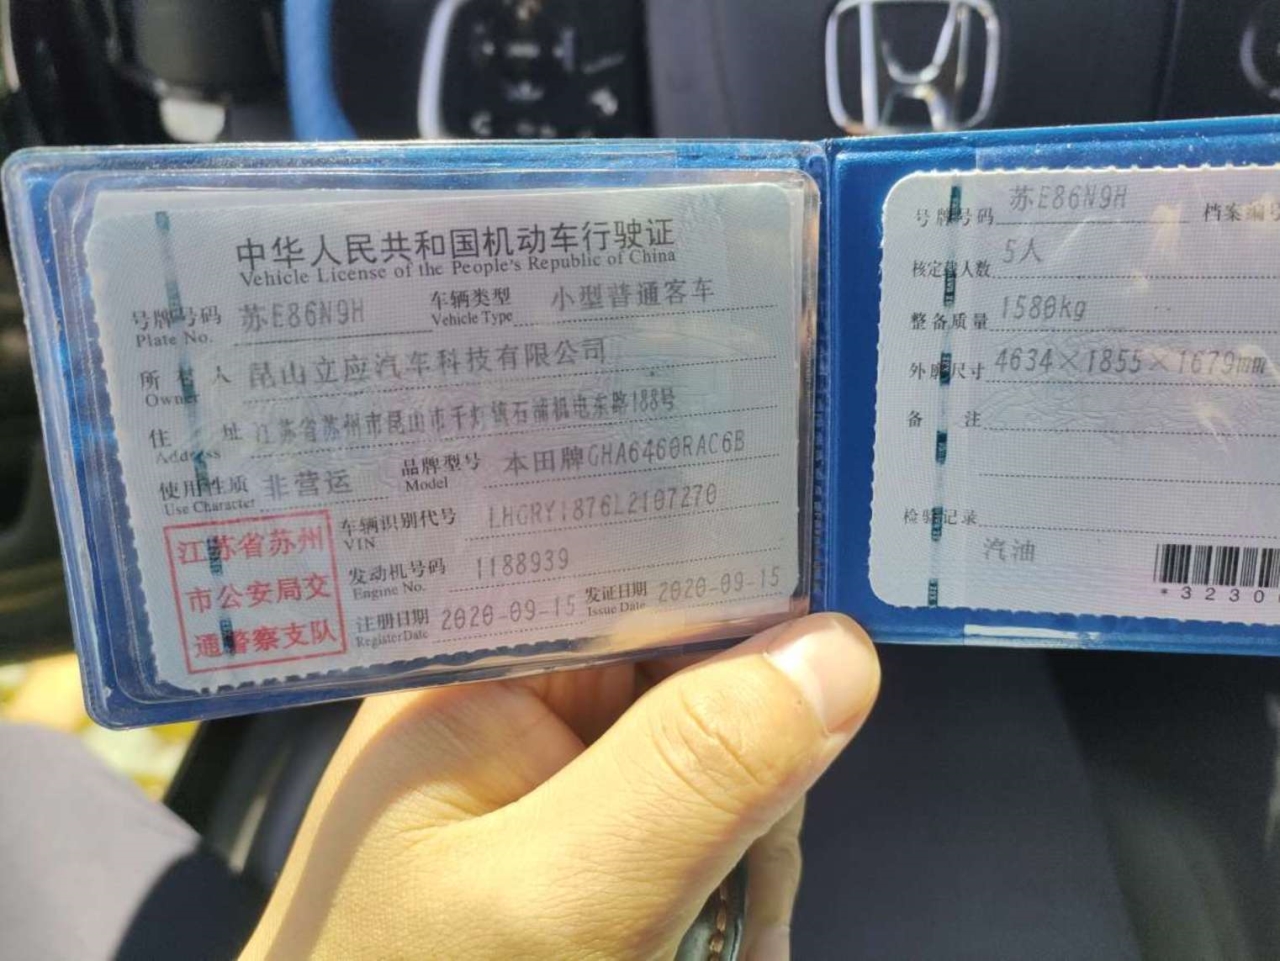 中华人民共和国机动车行驶证
Vehicle License of the People's Republic of China
号牌号码 苏E86N9H 车辆类型 小型普通客车
Plate No. Vehicle Type
所有人 昆山立应汽车科技有限公司
Owner
住址 江苏省苏州市昆山市千灯镇石浦机电东路188号
Address
使用性质 非营运 品牌型号 本田牌GHA6460RAC6B
Use Character Model
车辆识别代号 LHGRY1876L2107270
VIN
发动机号码 1188939
Engine No.
注册日期 2020-09-15 发证日期 2020-09-15
Register Date Issue Date
江苏省苏州
市公安局交
通警察支队
号牌号码 苏E86N9H 档案编号
核定载人数 5人
整备质量 1580kg
外廓尺寸 4634×1855×1679mm
备注
检验记录
汽油
*3230